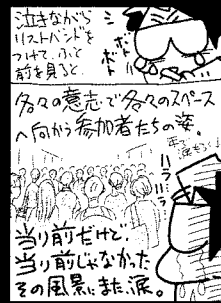 泣きながら
リストバンドを
つけて、ふと
前を見ると
ボト
ボト
各々の意志で各々のスペース
へ向かう参加者たちの姿。
ハラ
ハラ
当り前だけど、
当り前じゃなかった
その風景にまた涙。